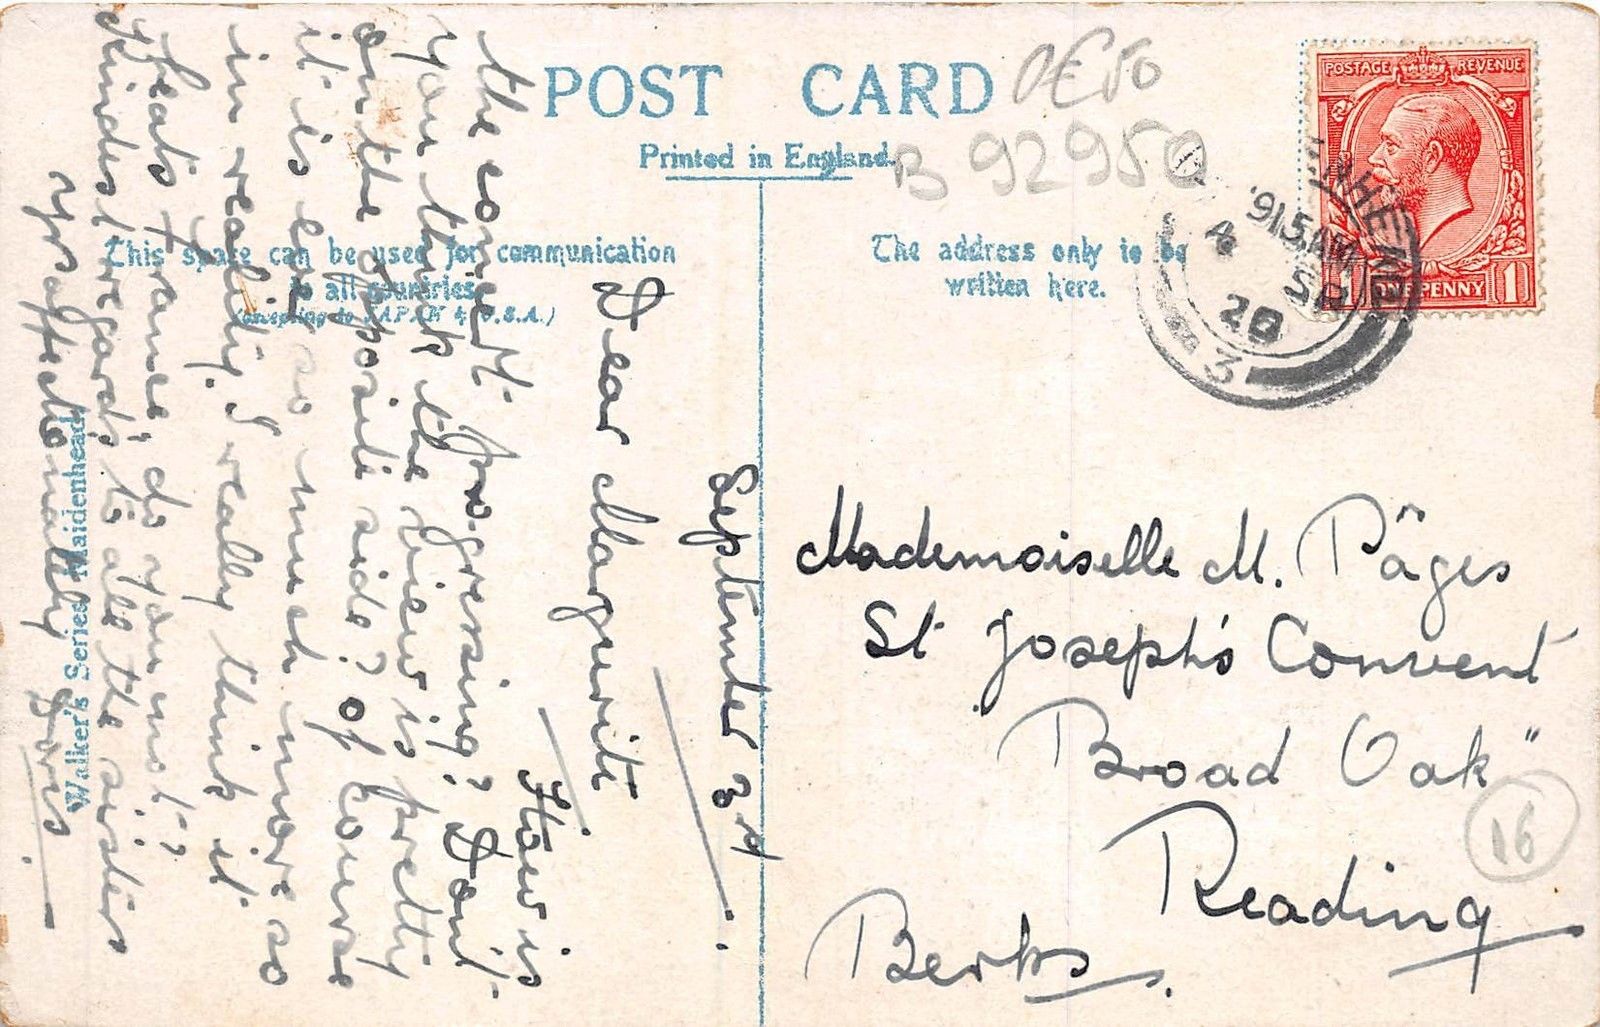 POST CARD
Printed in England.
This space can be used for communication
to all countries
(excepting to JAPAN & U.S.A.)
The address only to be
written here.
Walker's Series Maidenhead
POSTAGE REVENUE
ONE PENNY
1
9 15 AM
4 SP
20
3
B 92950
16
September 3rd.
Dear Marguerite
How is
the progressing? Don't
you think the view is pretty
on the opposite side? Of course
it is so much more so
in reality. I really think it
beats France; do you not?
Kindest regards to all the sisters
yrs affectionately Doris.
Mademoiselle M. Pages
St Joseph's Convent
"Broad Oak"
Reading
Berks.